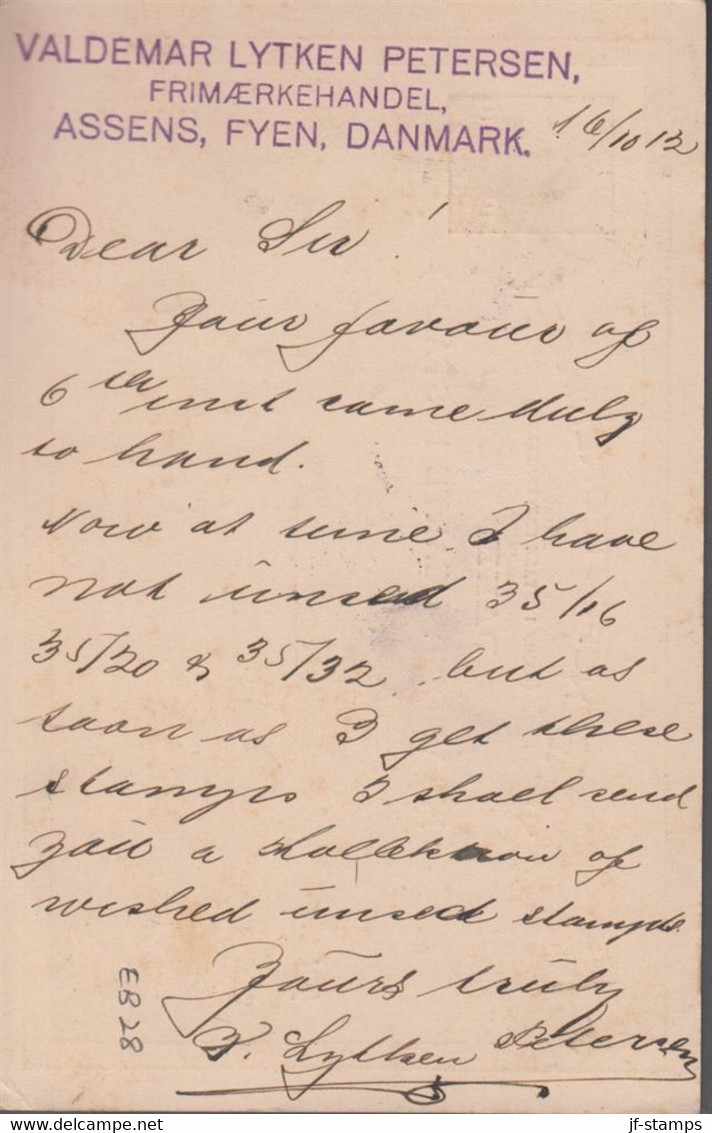 VALDEMAR LYTKEN PETERSEN,
FRIMÆRKEHANDEL,
ASSENS, FYEN, DANMARK.
16/10 12
Dear Sir!
Your favour of
6 ten inst came duly
to hand.
Now at time I have
not unsed 35/16
35/20 & 35/32 but as
soon as I get these
stamps I shall send
you a Kollektion of
wished unsed stamps.
Yours truly
V. Lytken Petersen
EB 28
delcampe.net
jf-stamps